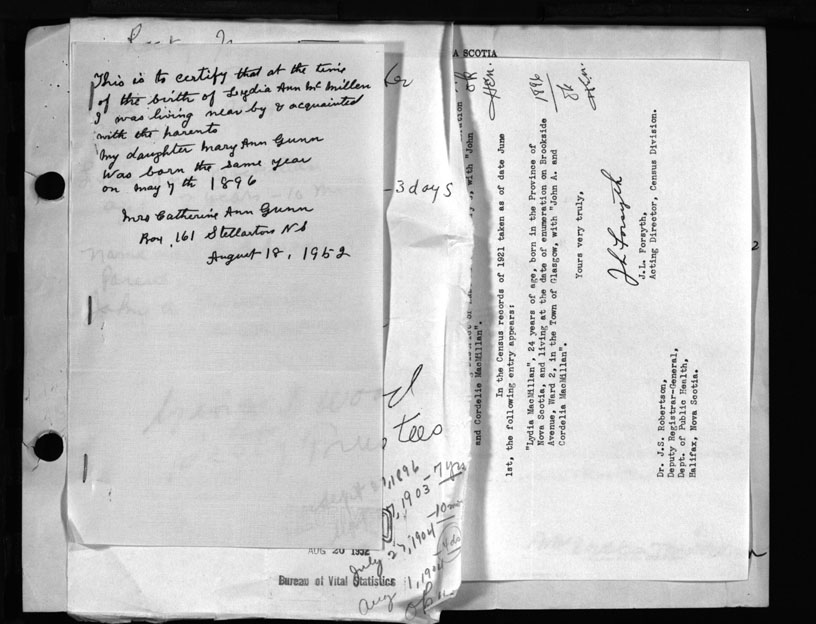 This is to certify that at the time
of the birth of Lydia Ann McMillen
I was living near by & acquainted
with the parents
My daughter Mary Ann Gunn
was born the same year
on May 7 th 1896
Mrs Catherine Ann Gunn
Box 161 Stellarton N S
August 18, 1952
-3 days
tees
1896
1903 - 7 yrs
July 27, 1904 - 10 mo
Aug 1, 1904 - 4 ds
AUG 20 1952
Bureau of Vital Statistics
A SCOTIA
with "John
and Cordelie MacMillan".
In the Census records of 1921 taken as of date June
1st, the following entry appears:
"Lydia MacMillan", 24 years of age, born in the Province of
Nova Scotia, and living at the date of enumeration on Brookside
Avenue, Ward 2, in the Town of Glasgow, with "John A. and
Cordelia MacMillan".
Yours very truly,
J L Forsyth
J.L. Forsyth,
Acting Director, Census Division.
Dr. J.S. Robertson,
Deputy Registrar-General,
Dept. of Public Health,
Halifax, Nova Scotia.
1896
OK